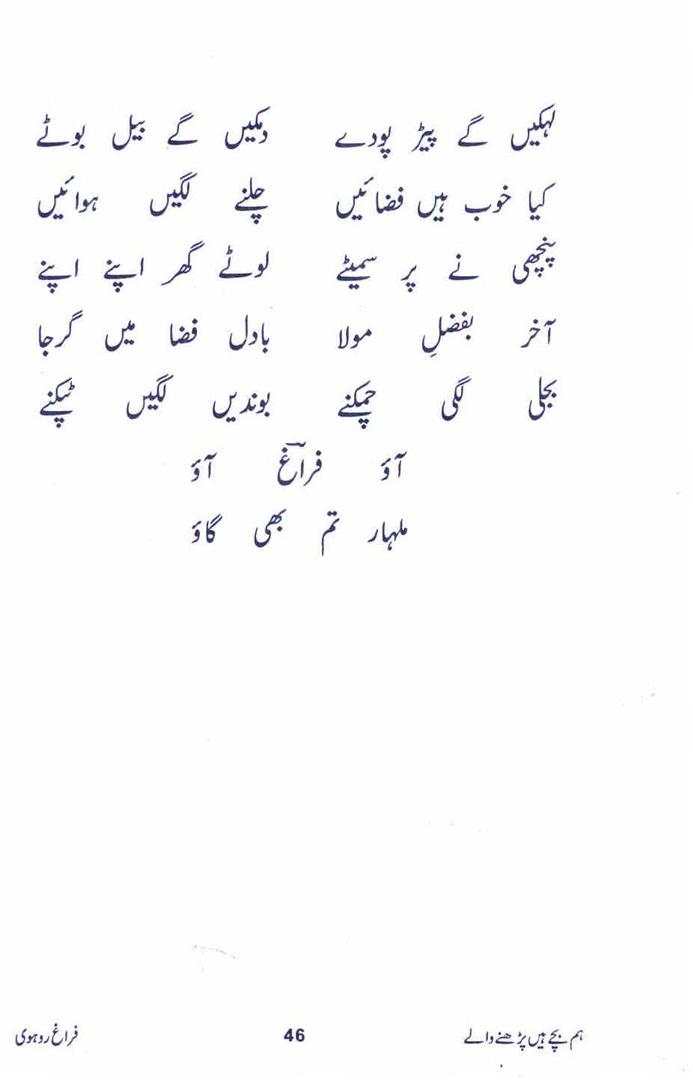 لہکیں گے پیڑ پودے دمکیں گے بیل بوٹے
کیا خوب ہیں فضائیں چلنے لگیں ہوائیں
پنچھی نے پر سمیٹے لوٹے گھر اپنے اپنے
آخر بفضلِ مولا بادل فضا میں گرجا
بجلی لگی چمکنے بوندیں لگیں ٹپکنے
آؤ فراغؔ آؤ
ملہار تم بھی گاؤ
ہم بچے ہیں پڑھنے والے 46 فراغ روہوی